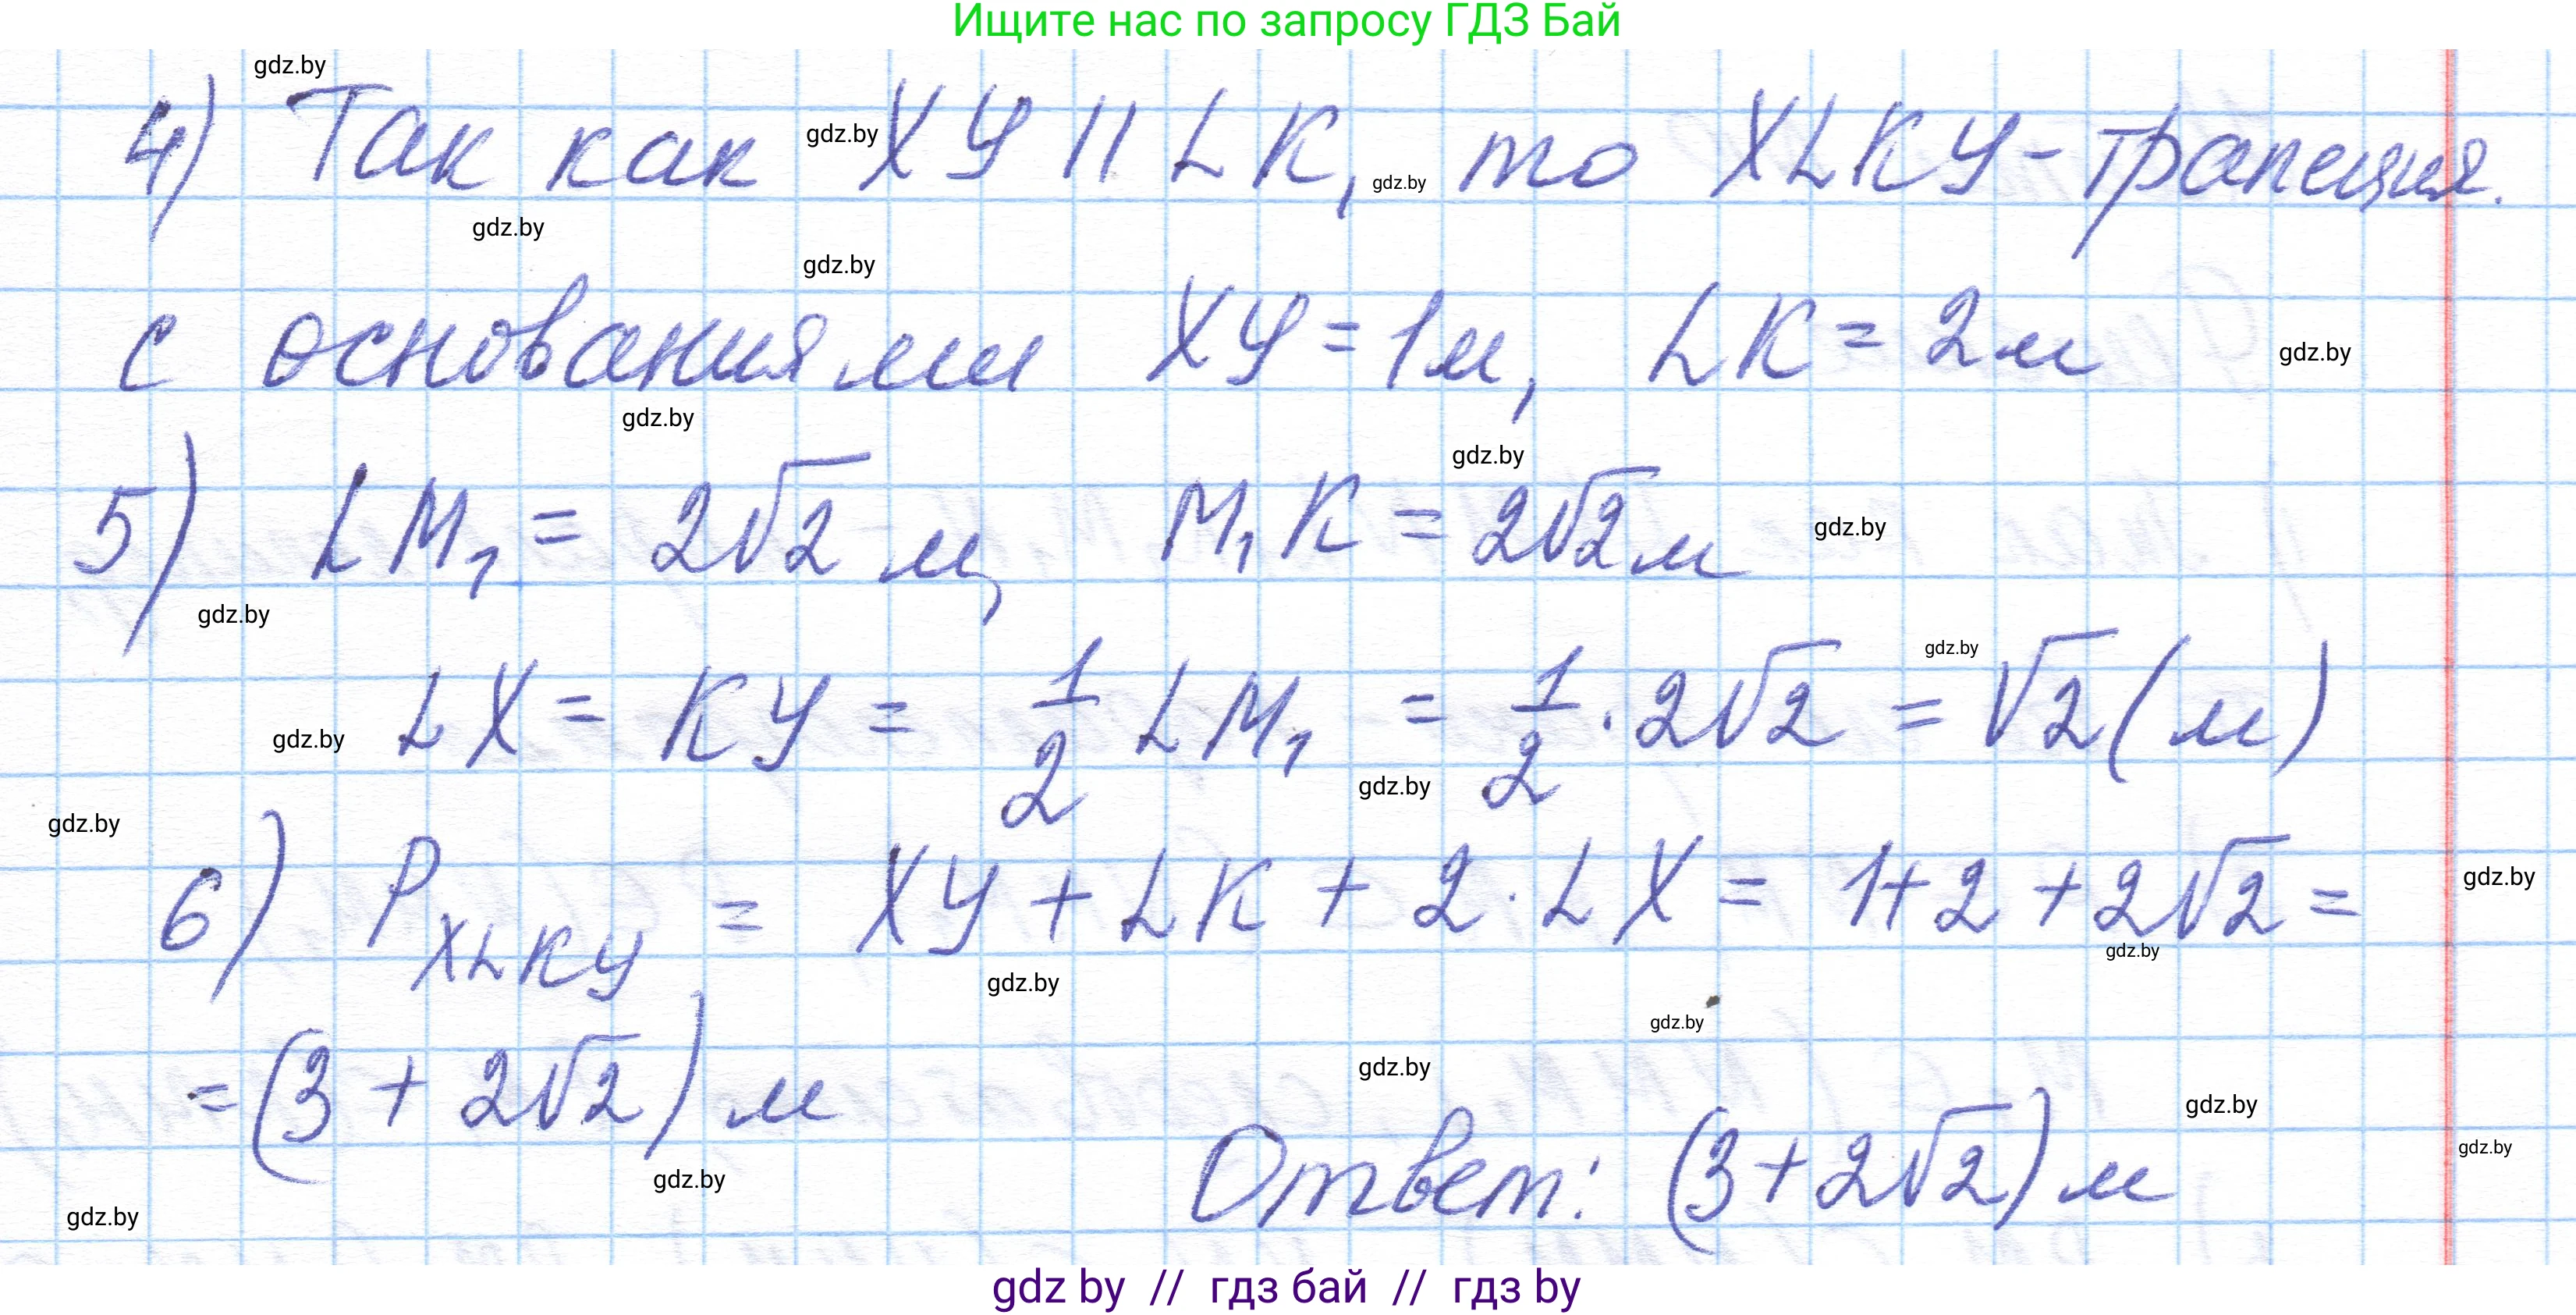 Ищите нас по запросу ГДЗ Бай
gdz.by
4) Так как gdz.by XY || LK, gdz.by то XLKY - трапеция.
gdz.by
gdz.by
с основаниями XY = 1м, LK = 2м gdz.by
gdz.by
gdz.by
5) LM₁ = 2√2 м, M₁K = 2√2 м gdz.by
gdz.by
gdz.by
gdz.by LX = KY = 1/2 LM₁ = 1/2 · 2√2 = √2 (м)
gdz.by
gdz.by
6) P_XLKY = XY + LK + 2 · LX = 1 + 2 + 2√2 = gdz.by
gdz.by
gdz.by
gdz.by
= (3 + 2√2) м gdz.by
gdz.by
gdz.by
gdz.by
Ответ: (3 + 2√2) м
gdz.by
gdz by // гдз бай // гдз by